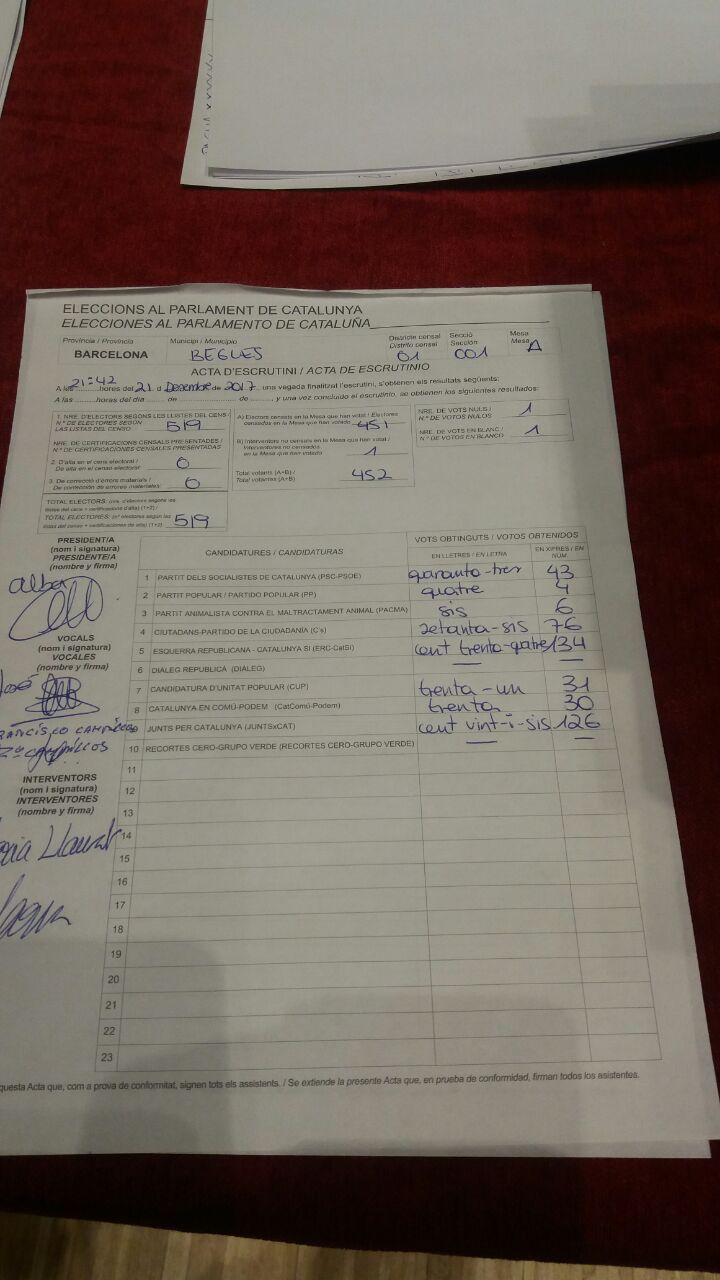 ELECCIONS AL PARLAMENT DE CATALUNYA
ELECCIONES AL PARLAMENTO DE CATALUÑA
Província / Provincia Municipi / Municipio Districte censal Secció Mesa
Distrito censal Sección Mesa
BARCELONA BEGUES 01 001 A
ACTA D'ESCRUTINI / ACTA DE ESCRUTINIO
A les 21:42 hores del 21 d Desembre de 2017, una vegada finalitzat l'escrutini, s'obtenen els resultats següents:
A las hores del día de de , y una vez concluido el escrutinio, se obtienen los siguientes resultados:
1. NRE. D'ELECTORS SEGONS LES LLISTES DEL CENS /
N.º DE ELECTORES SEGÚN
LAS LISTAS DEL CENSO 519
NRE. DE CERTIFICACIONS CENSALS PRESENTADES /
N.º DE CERTIFICACIONES CENSALES PRESENTADAS
2. D'alta en el cens electoral /
De alta en el censo electoral 0
3. De correcció d'errors materials /
De corrección de errores materiales 0
TOTAL ELECTORS: (nre. d'electors segons les
llistes del cens + certificacions d'alta) (1+2) /
TOTAL ELECTORES: (nº electores según las
listas del censo + certificaciones de alta) (1+2) 519
A) Electors censats en la Mesa que han votat / Electores
censados en la Mesa que han votado 451
B) Interventors no censats en la Mesa que han votat /
Interventores no censados
en la Mesa que han votado 1
Total votants (A+B) /
Total votantes (A+B) 452
NRE. DE VOTS NULS /
N.º DE VOTOS NULOS 1
NRE. DE VOTS EN BLANC /
N.º DE VOTOS EN BLANCO 1
PRESIDENT/A
(nom i signatura)
PRESIDENTE/A
(nombre y firma)
alba
VOCALS
(nom i signatura)
VOCALES
(nombre y firma)
José
INTERVENTORS
(nom i signatura)
INTERVENTORES
(nombre y firma)
CANDIDATURES / CANDIDATURAS VOTS OBTINGUTS / VOTOS OBTENIDOS
EN LLETRES / EN LETRA EN XIFRES / EN NÚM.
1 PARTIT DELS SOCIALISTES DE CATALUNYA (PSC-PSOE) quaranta-tres 43
2 PARTIT POPULAR / PARTIDO POPULAR (PP) quatre 4
3 PARTIT ANIMALISTA CONTRA EL MALTRACTAMENT ANIMAL (PACMA) sis 6
4 CIUTADANS-PARTIDO DE LA CIUDADANÍA (C's) setanta-sis 76
5 ESQUERRA REPUBLICANA - CATALUNYA SI (ERC-CatSí) cent trenta-quatre 134
6 DIÀLEG REPUBLICÀ (DIÀLEG) — —
7 CANDIDATURA D'UNITAT POPULAR (CUP) trenta-un 31
8 CATALUNYA EN COMÚ-PODEM (CatComú-Podem) trenta 30
9 JUNTS PER CATALUNYA (JUNTSxCAT) cent vint-i-sis 126
10 RECORTES CERO-GRUPO VERDE (RECORTES CERO-GRUPO VERDE) — —
11
12
13
14
15
16
17
18
19
20
21
22
23
questa Acta que, com a prova de conformitat, signen tots els assistents. / Se extiende la presente Acta que, en prueba de conformidad, firman todos los asistentes.